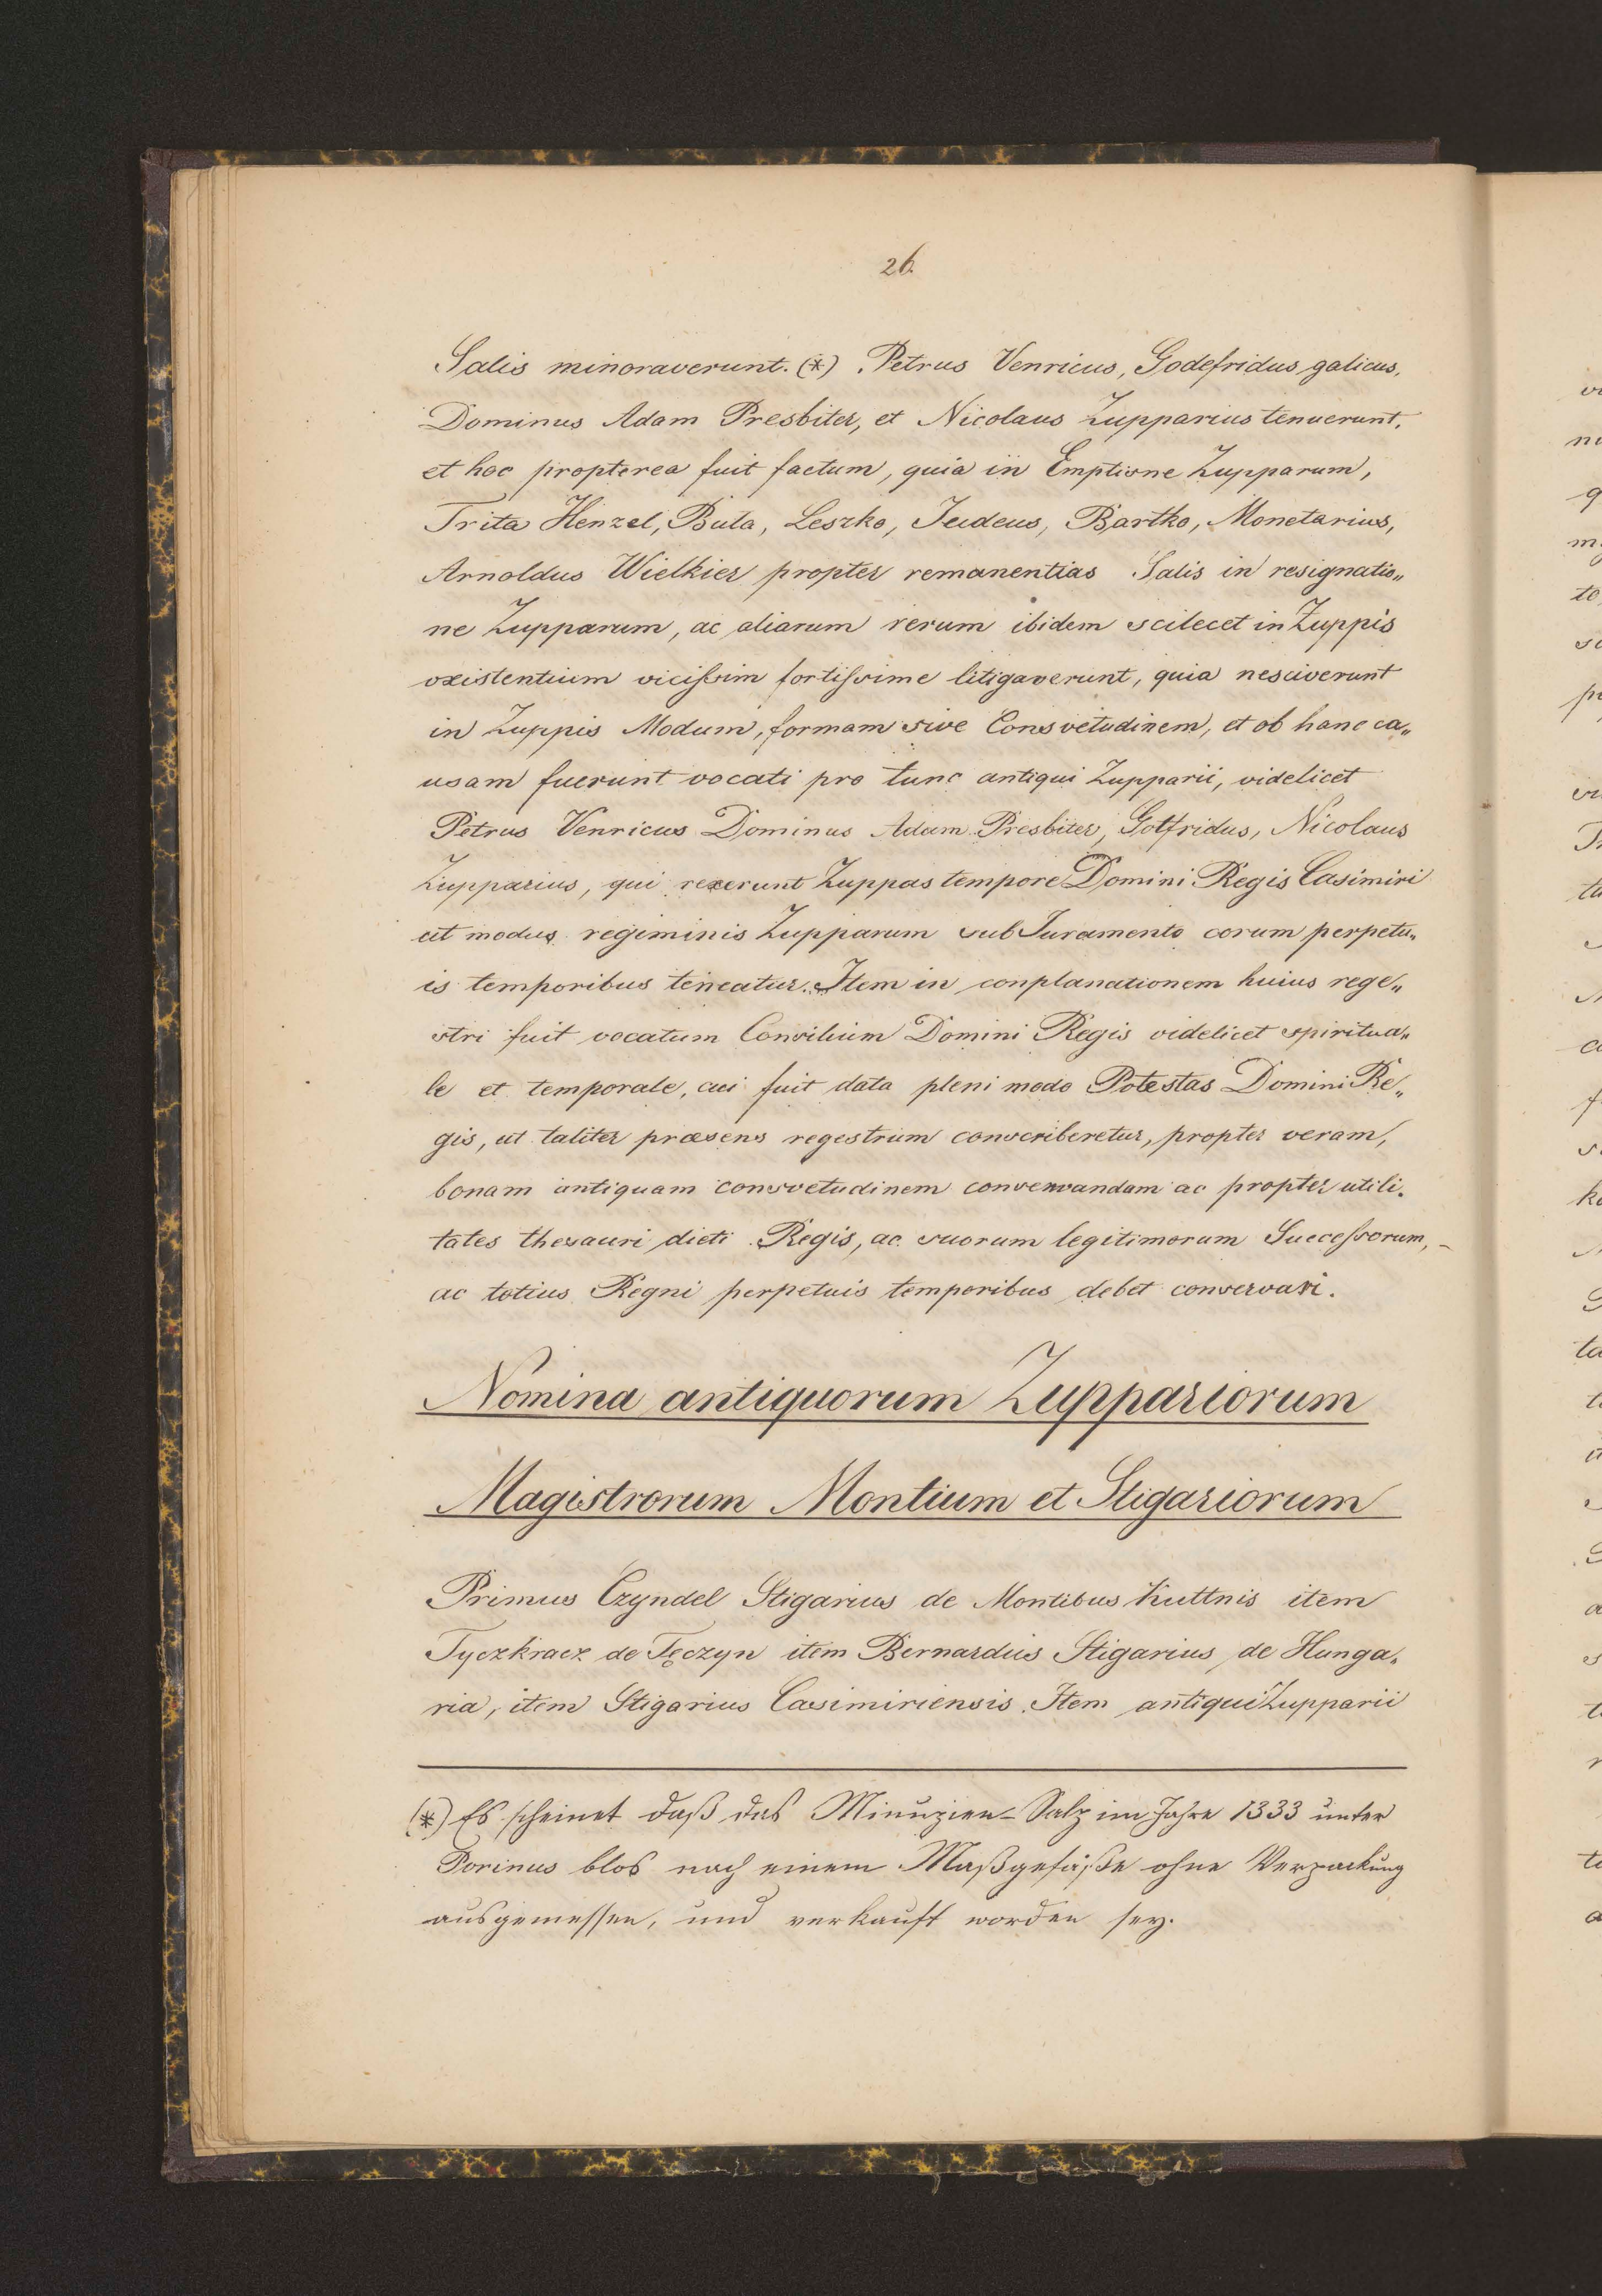 26.
Salis minoraverunt. (*) Petrus Venricus, Godefridus galicus,
Dominus Adam Presbiter, et Nicolaus Zupparius tenuerunt,
et hoc propterea fuit factum, quia in Emptione Zupparum,
Trita Henzel, Buta, Leszko, Judeus, Bartko, Monetarius,
Arnoldus Wielkier propter remanentias Salis in resignatio„
ne Zupparum, ac aliarum rerum ibidem scilecet in Zuppis
existentium vicissim fortissime litigaverunt, quia nesciverunt
in Zuppis Modum, formam sive Consvetudinem, et ob hanc ca„
usam fuerunt vocati pro tunc antiqui Zupparii, videlicet
Petrus Venricus Dominus Adam Presbiter, Gotfridus, Nicolaus
Zupparius, qui rexerunt Zuppas tempore Domini Regis Casimiri
ut modus regiminis Zupparum sub Juramento eorum perpetu„
is temporibus teneatur. Item in conplanationem huius rege„
stri fuit vocatum Consilium Domini Regis videlicet spiritua„
le et temporale, cui fuit data pleni modo Potestas Domini Re„
gis, ut taliter præsens regestrum conscriberetur, propter veram,
bonam antiquam consvetudinem conservandam ac propter utili„
tates thesauri dicti Regis, ac suorum legitimorum Successorum,
ac totius Regni perpetuis temporibus debet conservari.
Nomina antiquorum Zuppariorum
Magistrorum Montium et Stigariorum
Primus Czyndel Stigarius de Montibus Kuttnis item
Tyczkracz de Tęczyn item Bernardus Stigarius de Hunga„
ria, item Stigarius Casimiriensis. Item antiqui Zupparii
(*) Es scheinet daß das Minuzien-Salz im Jahre 1333 unter
Porinus blos nach einem Maßgefäße ohne Verpackung
ausgemessen, und verkauft worden sey.